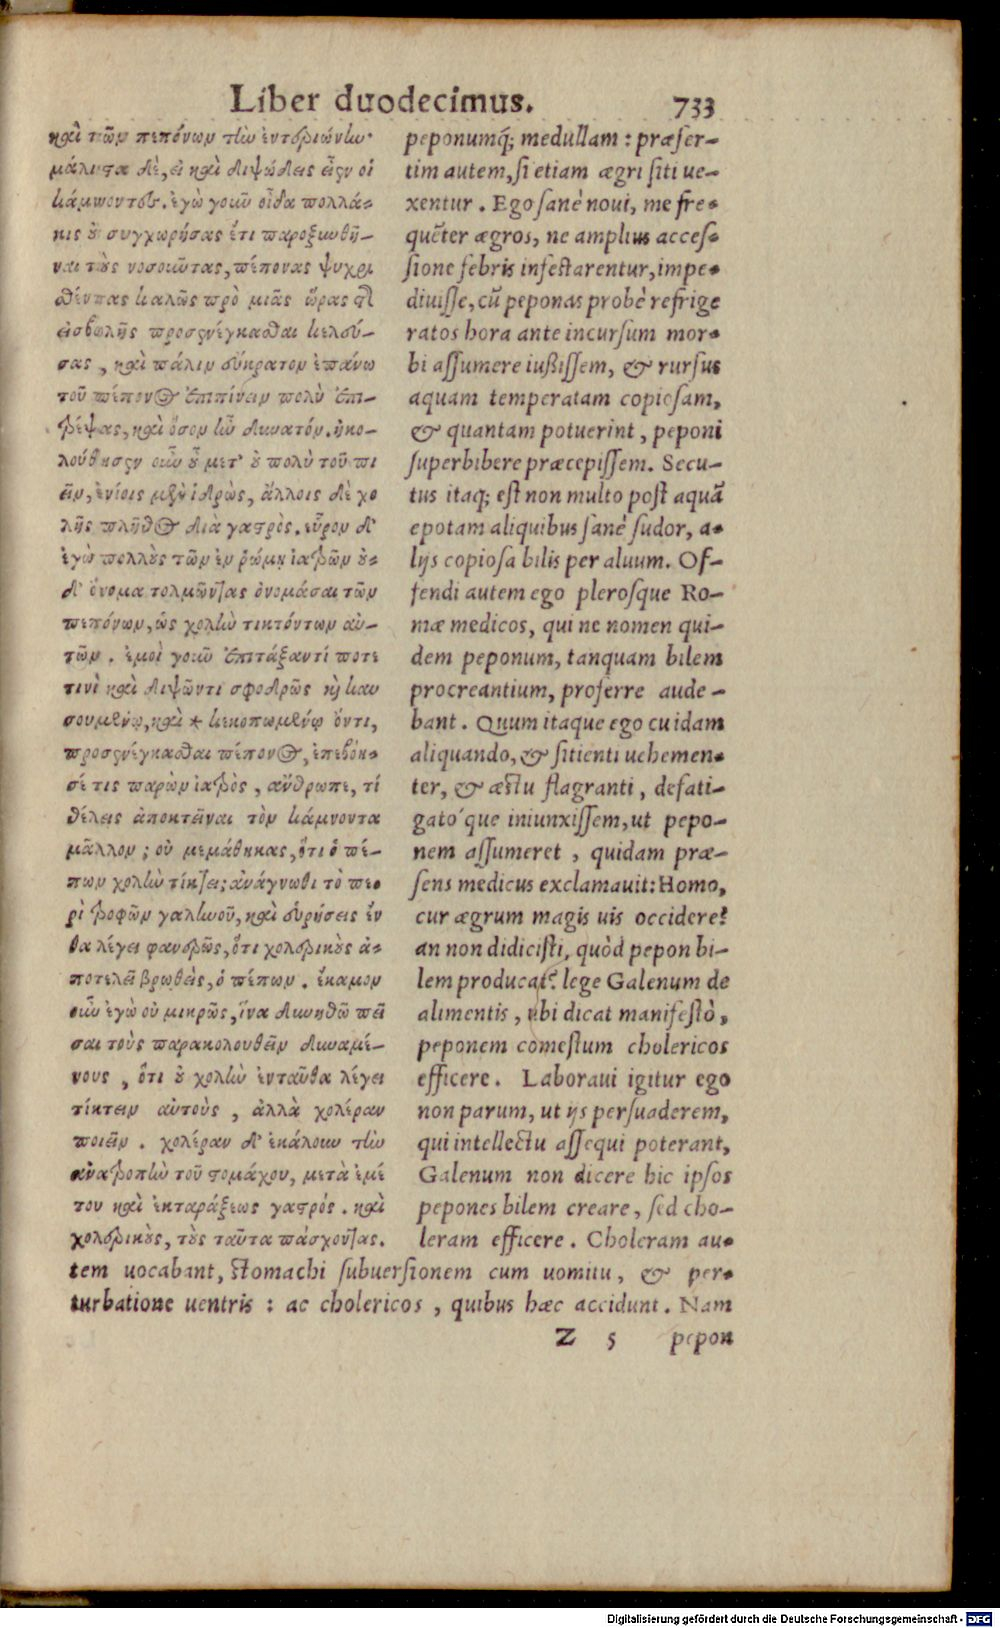 Liber duodecimus. 733
καὶ τῶν πεπόνων τὴν ἐντεριώνην·
μάλιστα δὲ, εἰ καὶ διψώδεις εἶεν οἱ
κάμνοντες. ἐγὼ γοῦν οἶδα πολλά-
κις οὐ συγχωρήσας ἔτι παροξυνθῆ-
ναι τοὺς νοσοῦντας, πέπονας ψυχρι
θέντας καλῶς πρὸ μιᾶς ὥρας τῆς
εἰσβολῆς προσενέγκασθαι κελεύ-
σας, καὶ πάλιν εὔκρατον ἐπάνω
τοῦ πέπονος ἐπιπίνειν πολὺ ἐπι-
τρέψας, καὶ ὅσον ἦν δυνατόν. ἠκο-
λούθησεν οὖν οὐ μετ' οὐ πολὺ τοῦ πι
εῖν, ἐνίοις μὲν ἱδρὼς, ἄλλοις δὲ χο
λῆς πλῆθος διὰ γαστρὸς. εὗρον δ'
ἐγὼ πολλοὺς τῶν ἐν ῥώμῃ ἰατρῶν οὐ-
δ' ὄνομα τολμῶντας ὀνομάσαι τῶν
πεπόνων, ὡς χολὴν τικτόντων αὐ-
τῶν. ἐμοὶ γοῦν ἐπιτάξαντί ποτε
τινὶ καὶ διψῶντι σφοδρῶς καὶ καυ
σουμένῳ, καὶ * κεκοπωμένῳ ὄντι,
προσενέγκασθαι πέπονος, ἐπεβόη-
σέ τις παρὼν ἰατρὸς, ἄνθρωπε, τί
θέλεις ἀποκτεῖναι τὸν κάμνοντα
μᾶλλον; οὐ μεμάθηκας, ὅτι ὁ πέ-
πων χολὴν τίκτει; ἀνάγνωθι τὸ πε
ρὶ τροφῶν γαληνοῦ, καὶ εὑρήσεις ἔν
θα λέγει φανερῶς, ὅτι χολερικοὺς ἀ-
ποτελεῖ βρωθεὶς, ὁ πέπων. ἔκαμον
οὖν ἐγὼ οὐ μικρῶς, ἵνα δυνηθῶ πεῖ
σαι τοὺς παρακολουθεῖν δυναμέ-
νους, ὅτι οὐ χολὴν ἐνταῦθα λέγει
τίκτειν αὐτοὺς, ἀλλὰ χολέραν
ποιεῖν. χολέραν δ' ἐκάλουν τὴν
ἀνατροπὴν τοῦ στομάχου, μετὰ ἐμέ
του καὶ ἐκταράξεως γαστρός. καὶ
χολερικοὺς, τοὺς ταῦτα πάσχοντας.
peponumq́; medullam: præser-
tim autem, si etiam ægri siti ue-
xentur. Ego sanè noui, me fre-
quẽter ægros, ne amplius acces-
sione febris infestarentur, impe-
diuisse, cũ peponas probè refrige
ratos hora ante incursum mor-
bi assumere iußissem, & rursus
aquam temperatam copiosam,
& quantam potuerint, peponi
superbibere præcepissem. Secu-
tus itaq; est non multo post aquã
epotam aliquibus sanè sudor, a-
lijs copiosa bilis per aluum. Of-
fendi autem ego plerosque Ro-
mæ medicos, qui ne nomen qui-
dem peponum, tanquam bilem
procreantium, proferre aude-
bant. Quum itaque ego cuidam
aliquando, & sitienti uehemen-
ter, & æstu flagranti, defati-
gato´que iniunxissem, ut pepo-
nem assumeret, quidam præ-
sens medicus exclamauit: Homo,
cur ægrum magis uis occidere?
an non didicisti, quòd pepon bi-
lem producat? lege Galenum de
alimentis, ubi dicat manifestò,
peponem comestum cholericos
efficere. Laboraui igitur ego
non parum, ut ijs persuaderem,
qui intellectu assequi poterant,
Galenum non dicere hic ipsos
pepones bilem creare, sed cho-
leram efficere. Choleram au-
tem uocabant, stomachi subuersionem cum uomitu, & per-
turbatione uentris: ac cholericos, quibus hæc accidunt. Nam
Z 5 pepon
Digitalisierung gefördert durch die Deutsche Forschungsgemeinschaft - DFG